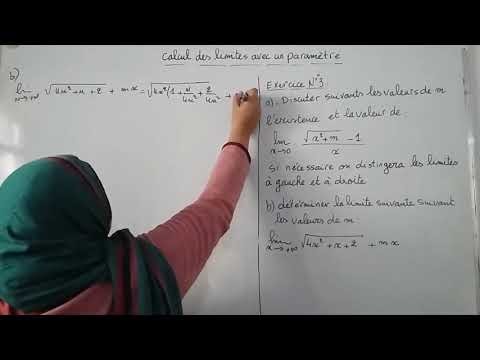 Calcul des limites avec un paramètre
b)
lim √4x²+x+2 + mx = √4x²(1+x/4x²+2/4x²
x→+∞
Exercice N°3
a). Discuter suivants les valeurs de m
l'existence et la valeur de:
lim √x²+m - 1 / x
x→0
Si nécessaire on distingera les limites
à gauche et à droite
b) déterminer la limite suivante suivant
les valeurs de m:
lim √4x²+x+2 + mx
x→+∞